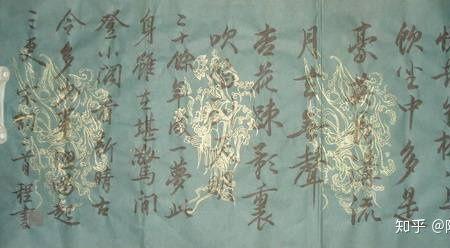 憶昔午橋橋上
飲坐中多是
豪英長溝流
月去無聲
杏花疎影裏
吹笛到天明
二十餘年成一夢此
身雖在堪驚閒
登小閣看新晴古
今多少事漁唱起
三更
書
知乎